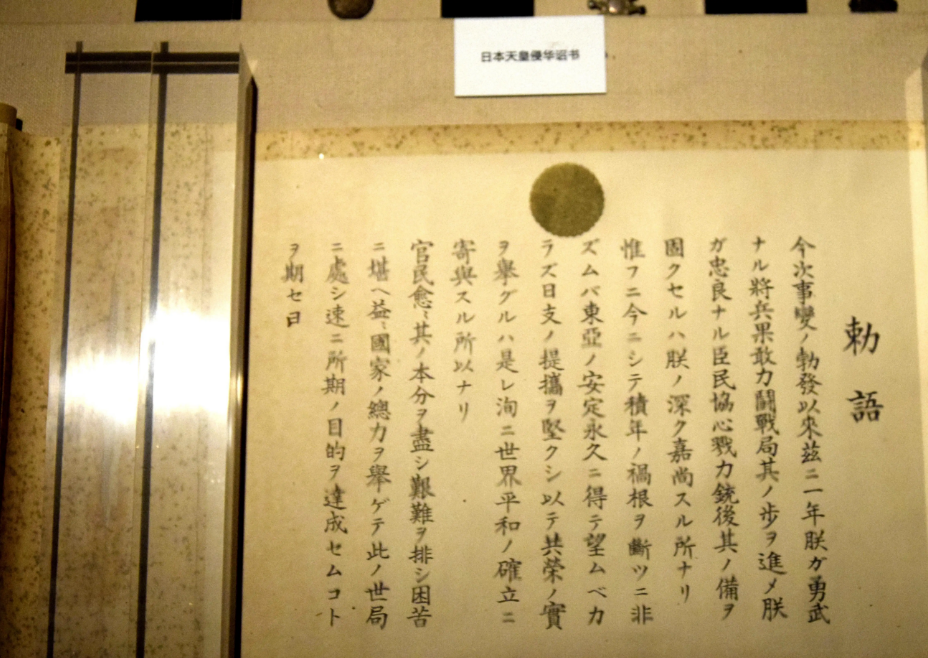 日本天皇侵华诏书
勅語
今次事變ノ勃發以來茲ニ一年朕ガ勇武
ナル將兵果敢力鬪戰局其ノ步ヲ進メ朕
ガ忠良ナル臣民協心戮力銃後其ノ備ヲ
固クセルハ朕ノ深ク嘉尚スル所ナリ
惟フニ今ニシテ積年ノ禍根ヲ斷ツニ非
ズムバ東亞ノ安定永久ニ得テ望ムベカ
ラズ日支ノ提攜ヲ堅クシ以テ共榮ノ實
ヲ擧グルハ是レ洵ニ世界平和ノ確立ニ
寄與スル所以ナリ
官民愈〻其ノ本分ヲ盡シ艱難ヲ排シ困苦
ニ堪ヘ益〻國家ノ總力ヲ擧ゲテ此ノ世局
ニ處シ速ニ所期ノ目的ヲ達成セムコト
ヲ期セヨ